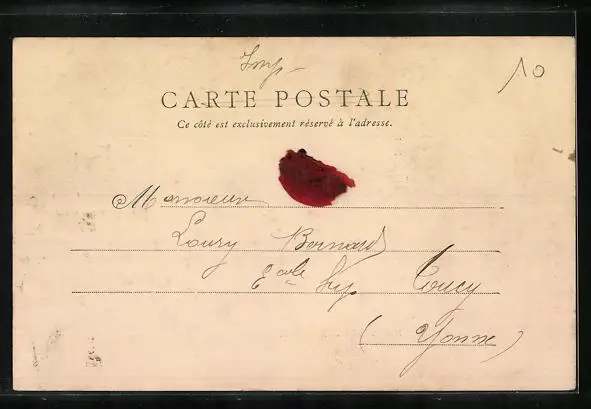 Imp
10
CARTE POSTALE
Ce côté est exclusivement réservé à l'adresse.
Monsieur
Loury Bernard
Ecole Sup. Toucy
(Yonne)